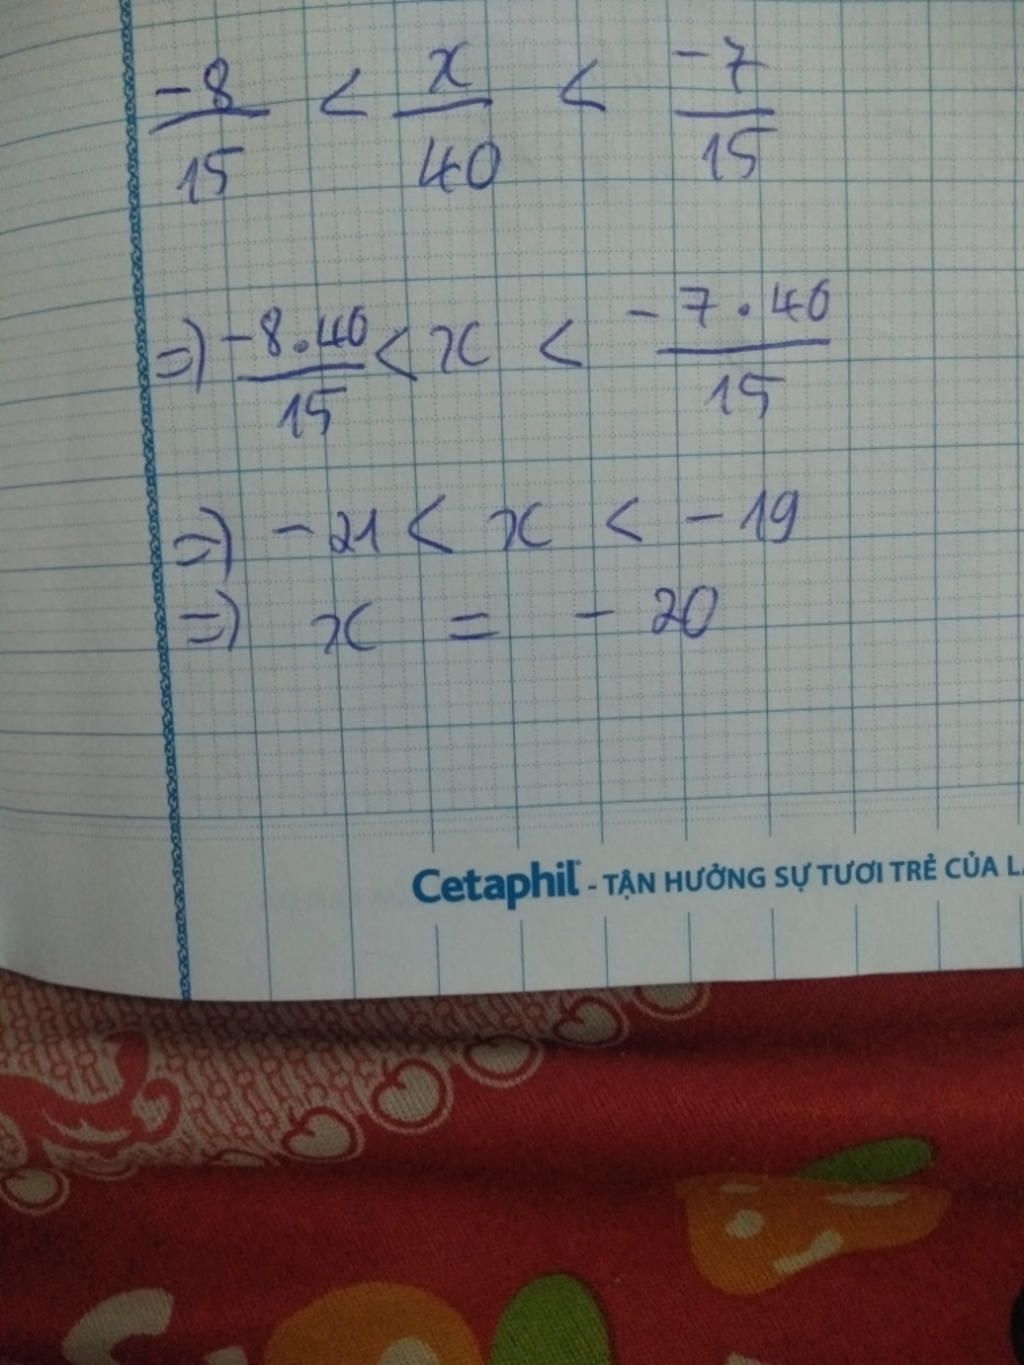 -8/15 < x/40 < -7/15
=) -8.40/15 < x < -7.40/15
=) -21 < x < -19
=) x = -20
Cetaphil - TẬN HƯỞNG SỰ TƯƠI TRẺ CỦA